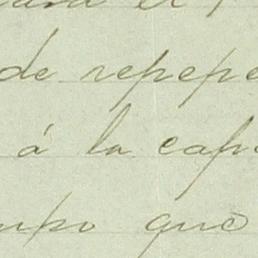 el
de repepe
á la cap
mpo que